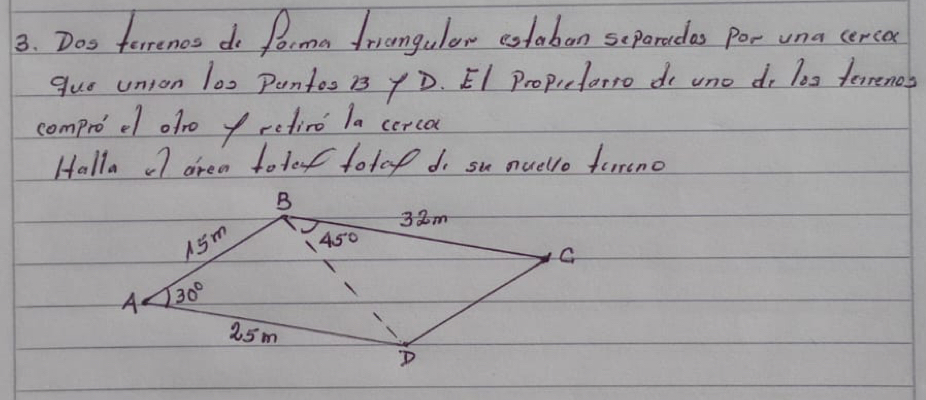 3. Dos terrenos de forma triangular estaban separados por una cerca
que unian los puntos B y D. El propietario de uno de los terrenos
compró el otro y retiró la cerca
Halla el área total total de su nuevo terreno
B
15m
450
32m
C
A
30°
25m
D